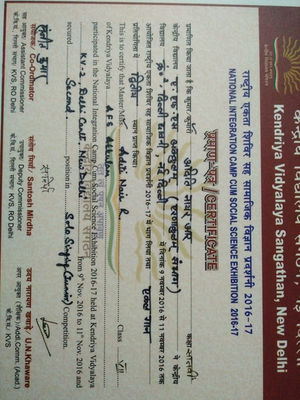 केन्द्रीय विद्यालय संगठन, नई दिल्ली
Kendriya Vidyalaya Sangathan, New Delhi
राष्ट्रीय एकता शिविर सह सामाजिक विज्ञान प्रदर्शनी २०१६-१७
NATIONAL INTEGRATION CAMP CUM SOCIAL SCIENCE EXHIBITION 2016-17
प्रमाण-पत्र / CERTIFICATE
प्रमाणित किया जाता है कि कुमार/कुमारी अदिति नायर आर कक्षा सातवीं ने केन्द्रीय
विद्यालय ए.एफ.एस अक्कुलम
विद्यालय दिल्ली छावनी, नई दिल्ली में दिनांक 9 नवंबर 2016 से 11 नवंबर 2016 तक
आयोजित राष्ट्रीय एकता शिविर सह सामाजिक विज्ञान प्रदर्शनी 2016-17 में भाग लिया तथा एकल गान
प्रतियोगिता में द्वितीय स्थान प्राप्त किया।
This is to certify that Master/Miss Aditi Nair R. Class VII
of Kendriya Vidyalaya AFS Akkulam
participated in the National Integration Camp Cum Social Science Exhibition 2016-17 held at Kendriya Vidyalaya
KV-2 Delhi Cantt, New Delhi from 9th Nov. 2016 to 11th Nov. 2016 and
secured Second position in Solo Singing (Junior) Competition.
संयोजक / Co-ordinator
सहायक आयुक्त / Assistant Commissioner
के.वि.सं. दिल्ली / KVS RO Delhi
संतोष मिर्धा / Santosh Mirdha
उपायुक्त / Deputy Commissioner
के.वि.सं. दिल्ली / KVS RO Delhi
उदय नारायण खवाड़े / U.N.Khaware
अपर आयुक्त (शैक्षिक) / Addl.Comm. (Acad.)
के.वि.सं. / KVS